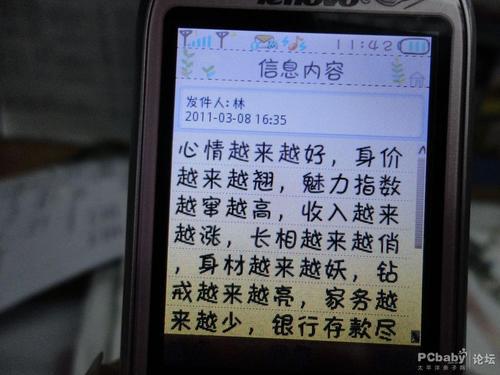 lenovo
11:42
信息内容
发件人:林
2011-03-08 16:35
心情越来越好，身价
越来越翘，魅力指数
越窜越高，收入越来
越涨，长相越来越俏
，身材越来越妖，钻
戒越来越亮，家务越
来越少，银行存款尽
PCbaby 论坛
太平洋亲子网